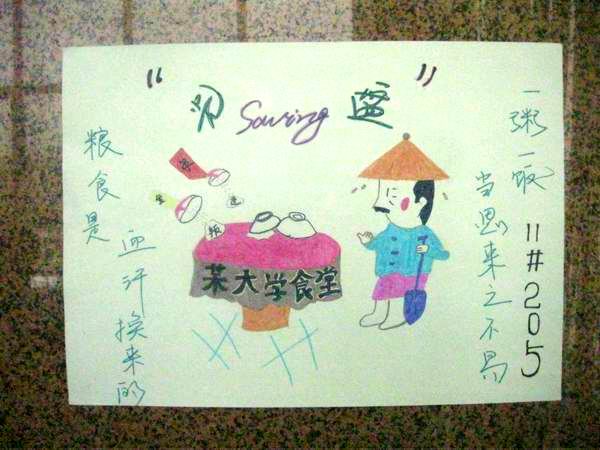 Saving
一粥一饭
当思来之不易
11#205
粮食是
血汗换来的
某大学食堂